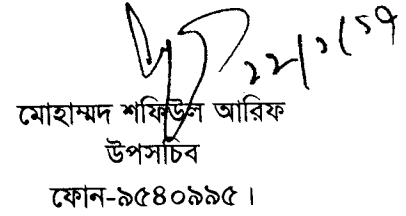 মোহাম্মদ শফিউল আরিফ
উপসচিব
ফোন-৯৫৪০৯৯৫।